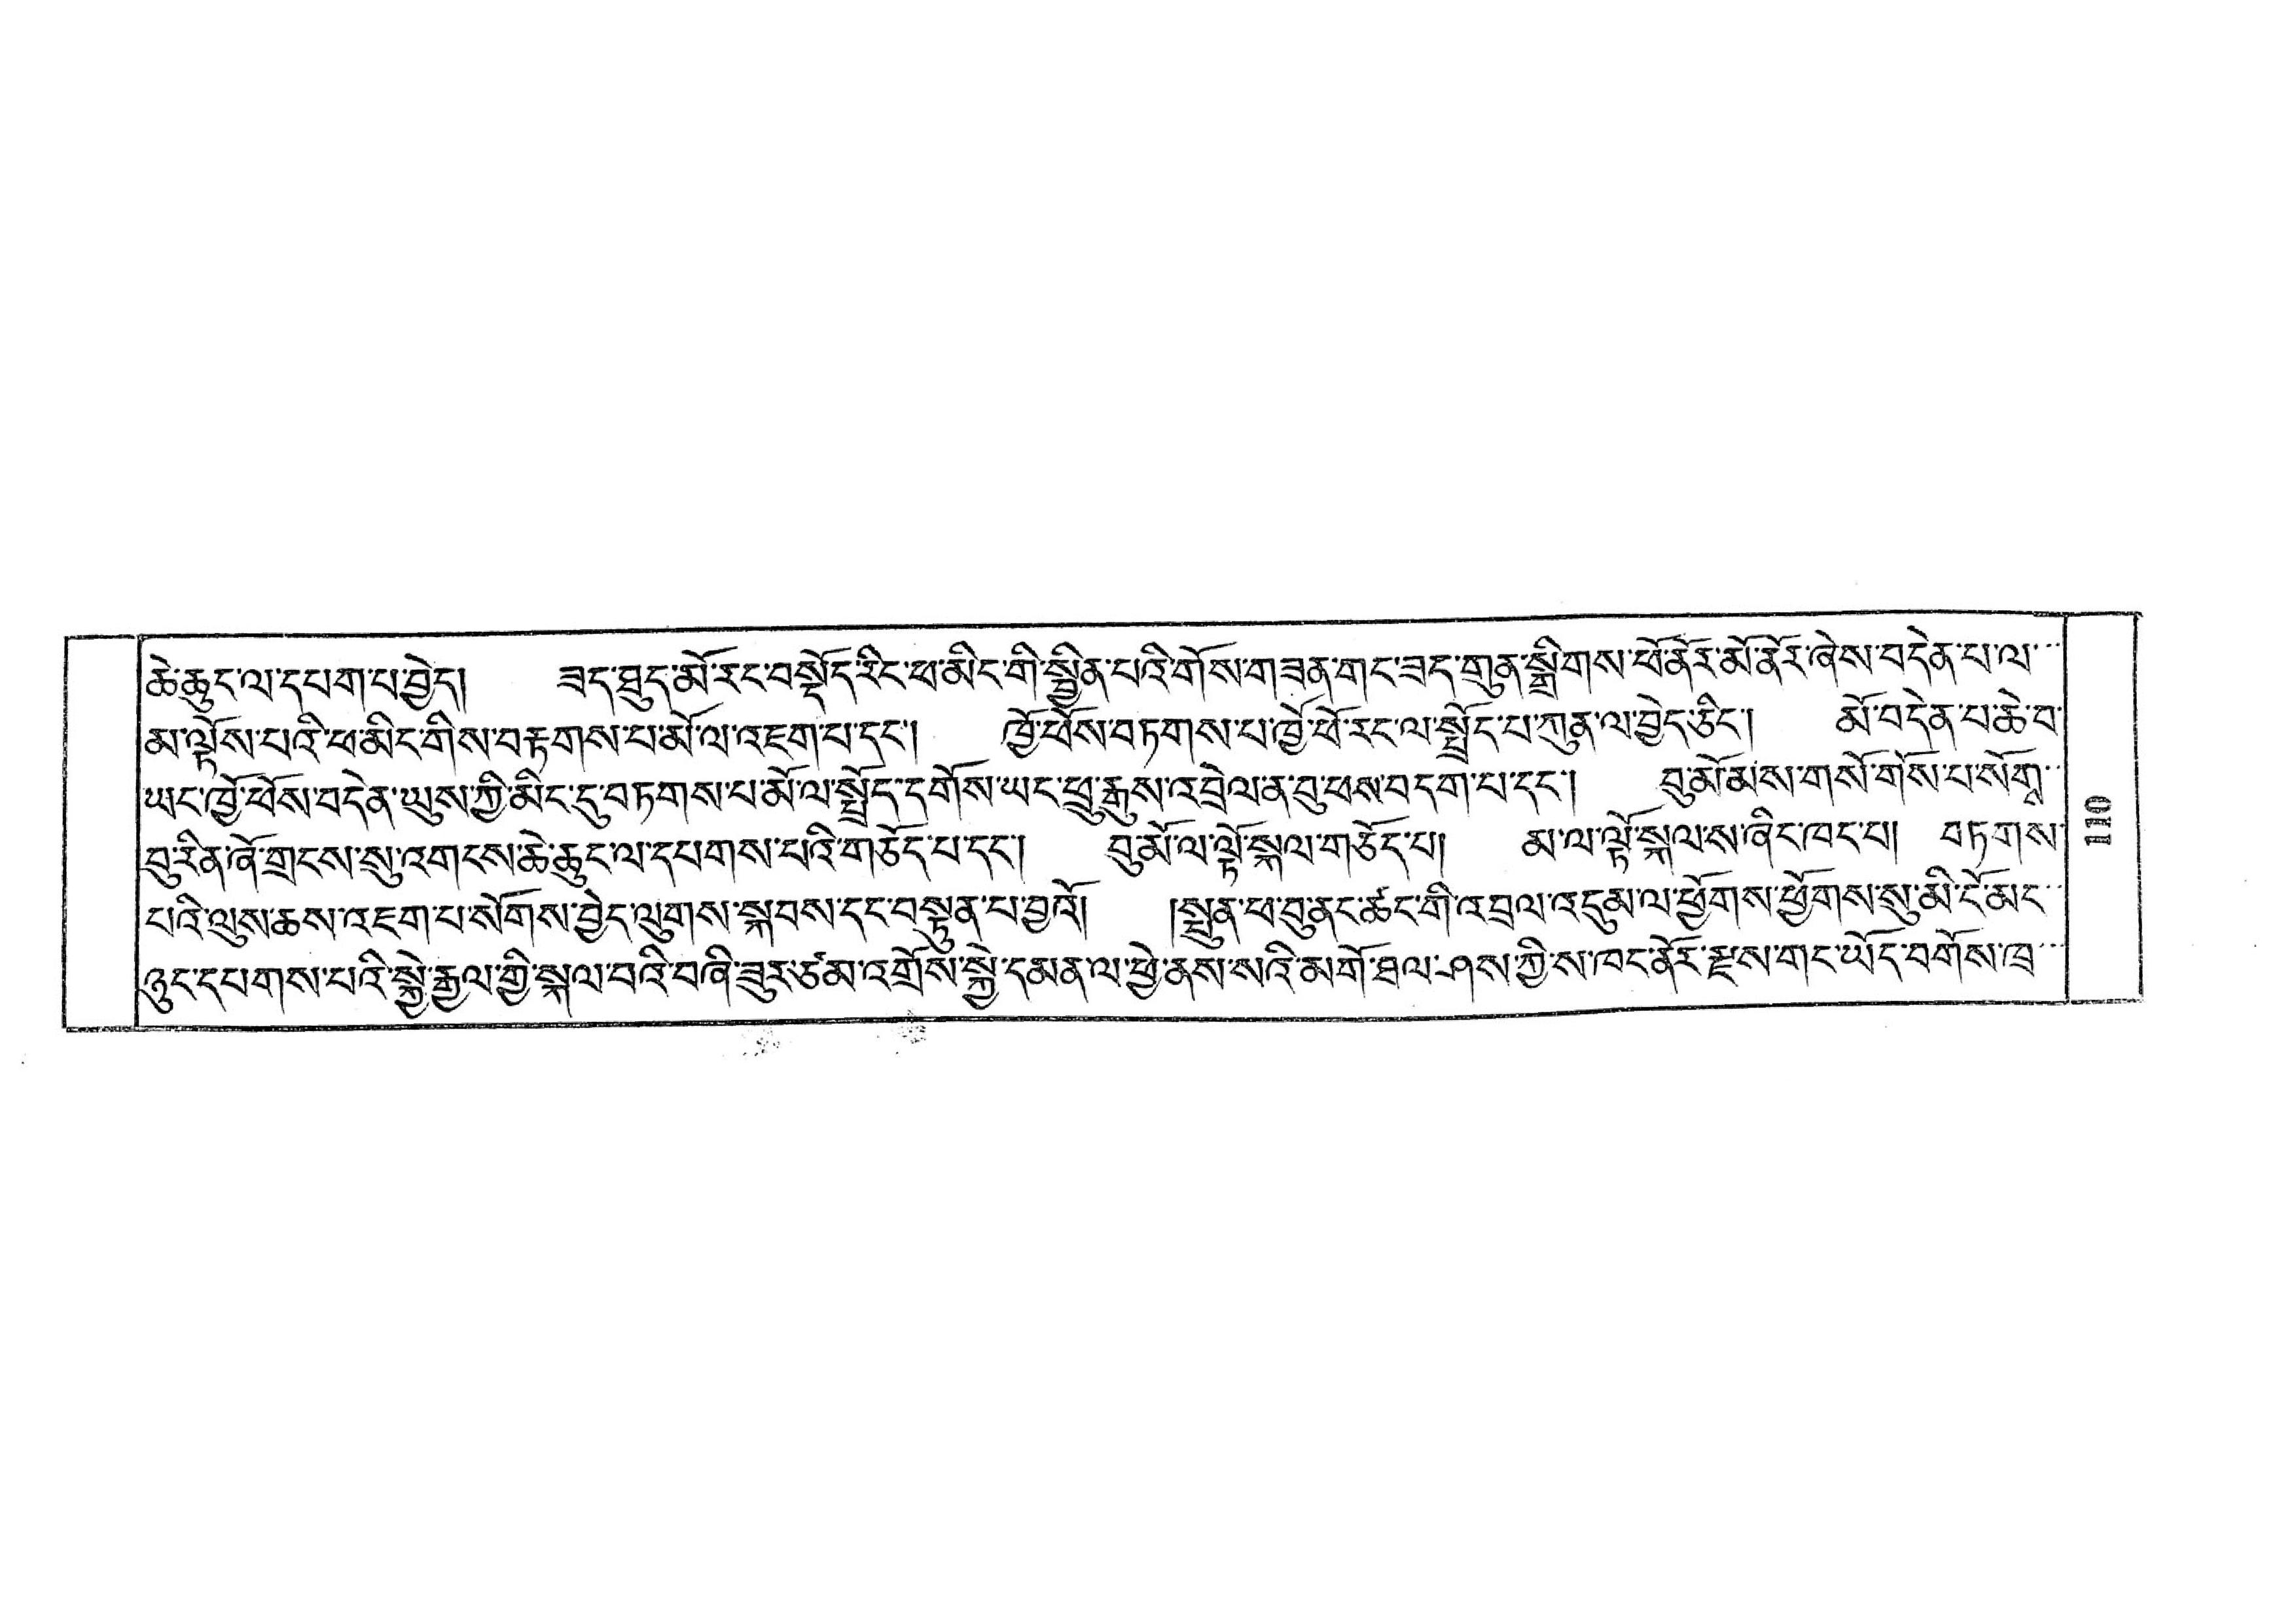 ཆེ་ཆུང་ལ་དཔག་པ་བྱེད། ཟད་ཐུད་མོ་རང་བསྡོད་རིང་ཕ་མིང་གི་སྦྱིན་པའི་གོས་གཟན་གང་ཟད་གྲུན་སྒྲིགས་ཕོ་ནོར་མོ་ནོར་ཞེས་བདེན་པ་ལ་
མ་ལྟོས་པའི་ཕ་མིང་གིས་བརྟགས་པ་མོ་ལ་འཇག་པ་དང་། ཁྱོ་ཕོས་བཏགས་པ་ཁྱོ་ཕོ་རང་ལ་སྤྲོད་པ་ཀུན་ལ་བྱེད་ཅིང་། མོ་བདེན་པ་ཆེ་བ་
ཡང་ཁྱོ་ཕོས་བདེན་ཡུས་ཀྱི་མིང་དུ་བཏགས་པ་མོ་ལ་སྤྲོད་དགོས་ཡང་ཕྲུ་རྒུས་འབྲེལ་ན་བུ་ཕས་བདག་པ་དང་། བུ་མོ་མས་གསོ་གོས་པ་སོགྭ་
བུ་རིན་ཞོ་གྲངས་སུ་འགངས་ཆེ་ཆུང་ལ་དཔགས་པའི་གཅོད་པ་དང་། བུ་མོ་ལ་ལྟོ་སྐལ་གཅོད་པ། མ་ལ་ལྟོ་སྐལ་ས་ཞིང་ཁང་པ། བཏགས་
པའི་ལུས་ཆས་འཇག་པ་སོགས་བྱེད་ལུགས་སྐབས་དང་བསྟུན་པ་བྱའོ། །སྤུན་ཕ་བུ་ནང་ཚང་གི་འབྲལ་འདུམ་ལ་ཕྱོགས་ཕྱོགས་སུ་མི་ངོ་མང་
ཉུང་དཔགས་པའི་སྐྱེ་རྒྱལ་གྱི་སྐལ་བའི་བཞི་ཟུར་ཙམ་འགྲོས་སྐྱེ་དམན་ལ་ཕྱེ་ནས་སའི་མགོ་ཐལ་ཤས་ཀྱི་ས་ཁང་ནོར་རྫས་གང་ཡོད་བགོས་ཁྲ་